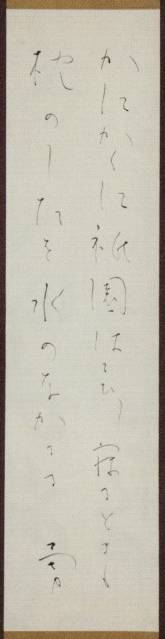 かにかくに祇園はこひし寝るときも
枕のしたを水のなかるる 勇